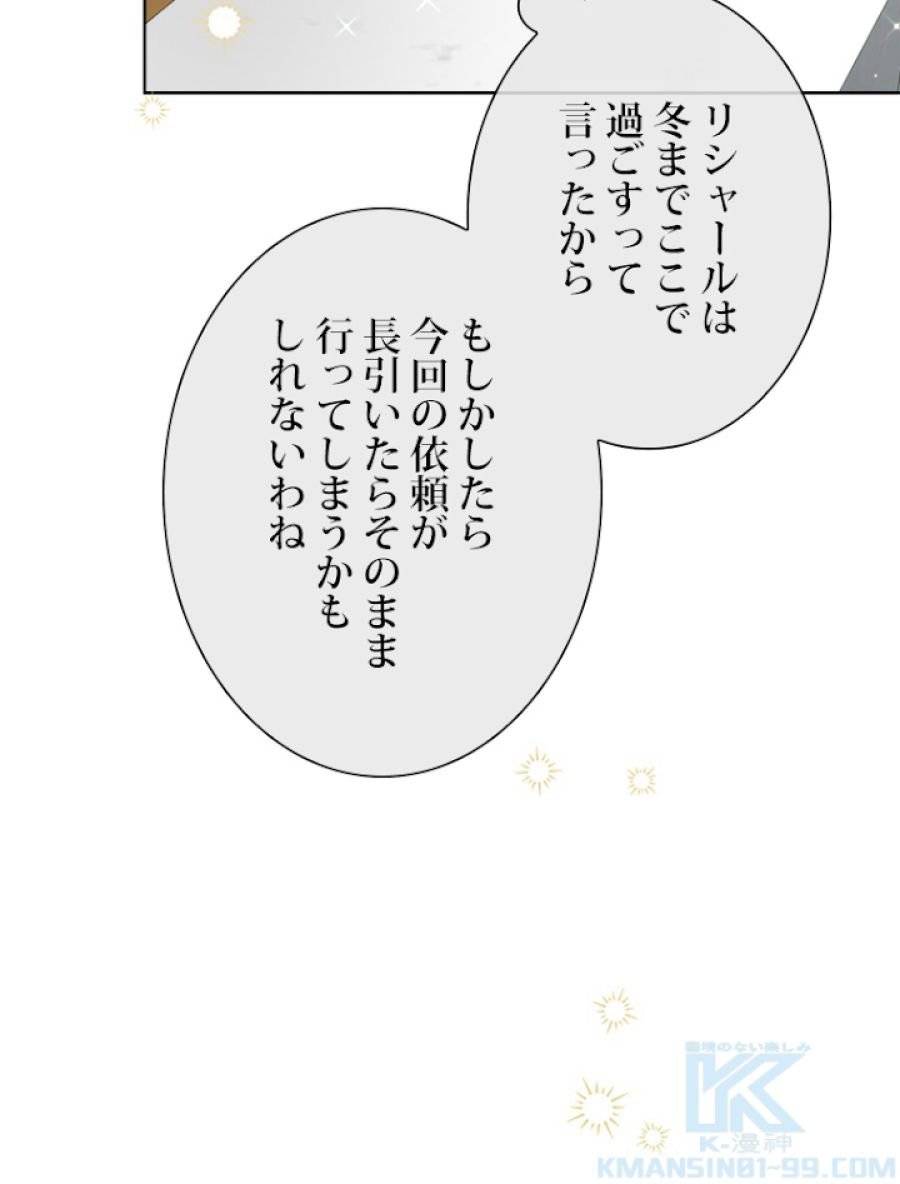 リシャールは
冬までここで
過ごすって
言ったから
もしかしたら
今回の依頼が
長引いたらそのまま
行ってしまうかも
しれないわね
国境のない楽しみ
K-漫神
KMANSIN01-99.COM